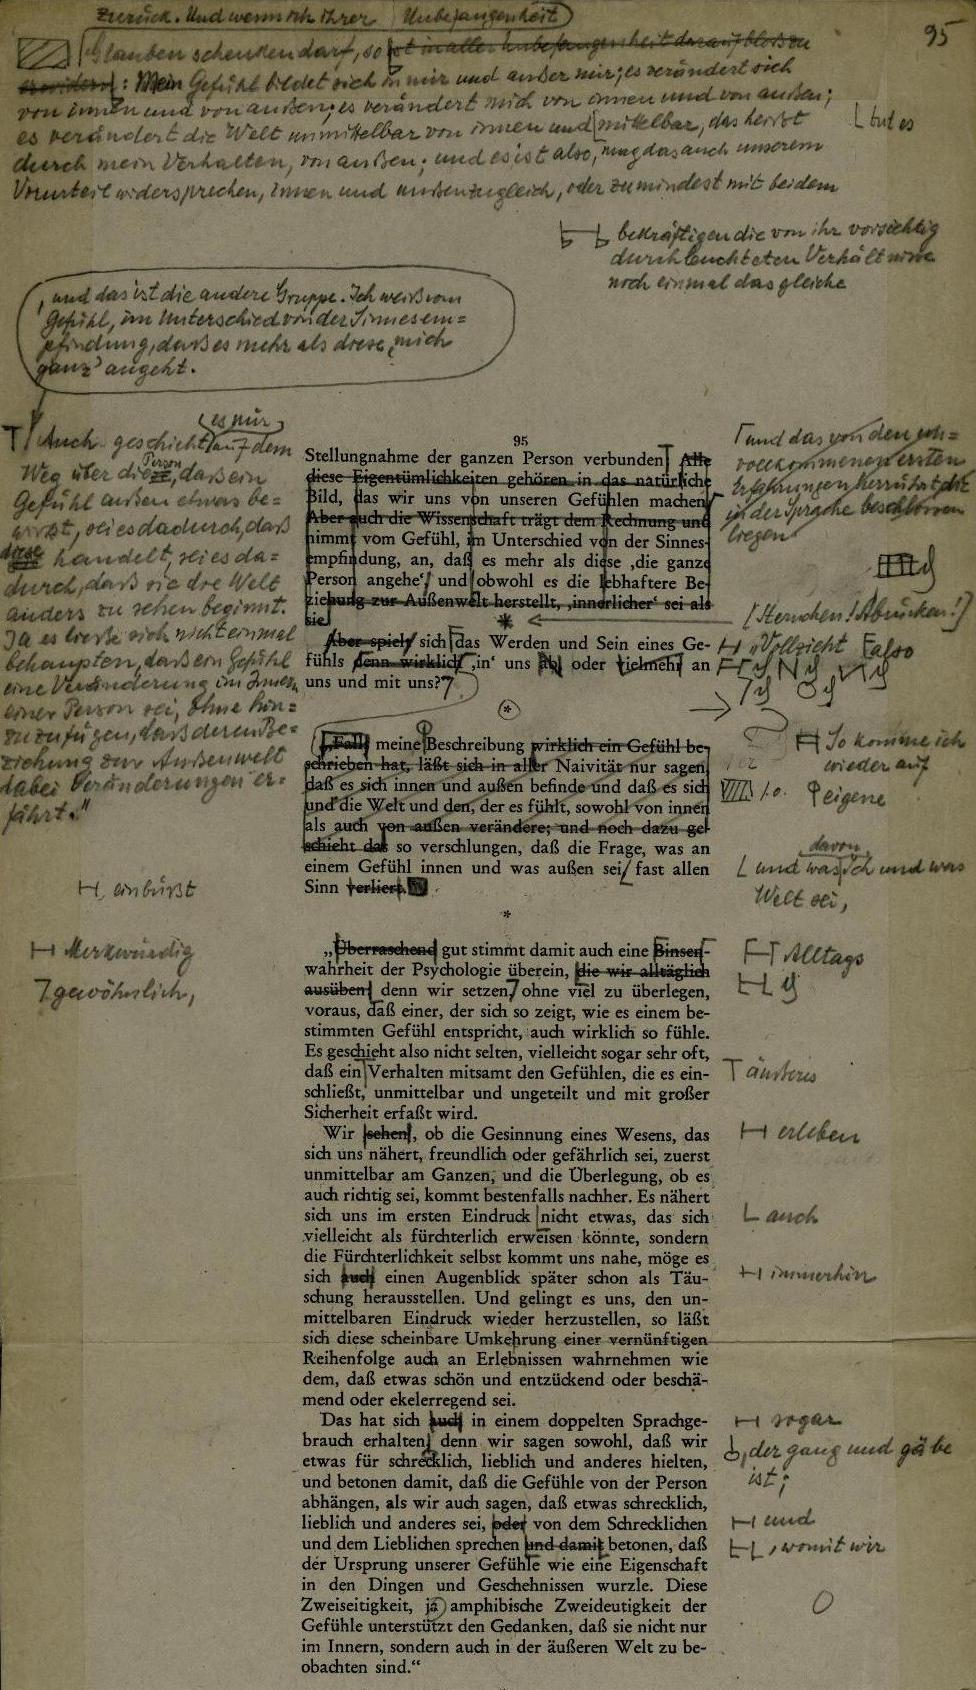 zurück. Und wenn ich ihrer Unbefangenheit
95
Glauben schenken darf, so ist in aller Unbefangenheit darauf bloß zu
erwidern: Mein Gefühl bildet sich in mir und außer mir; es verändert sich
von innen und von außen; es verändert mich von innen und von außen;
es verändert die Welt unmittelbar von innen und mittelbar, das heißt
tut es
durch mein Verhalten, von außen; und es ist also, mag das auch unserem
Vorurteil widersprechen, innen und außen zugleich, oder zumindest mit beidem
bekräftigen die von ihr vorsichtig
durchleuchteten Verhältnisse
noch einmal das gleiche
, und das ist die andere Gruppe. Ich weiß vom
Gefühl, im Unterschied von der Sinnesem=
pfindung, daß es mehr als diese ‚mich
ganz‘ angeht.
es nur
Auch geschieht auf dem
Weg über die Person, daß ein
Gefühl außen etwas be=
wirkt, sei es dadurch, daß
diese handelt, sei es da=
durch, daß sie die Welt
anders zu sehen beginnt.
Ja es ließe sich nicht einmal
behaupten, daß ein Gefühl
eine Veränderung im Innern
einer Person sei, ohne hin=
zuzufügen, daß deren Be=
ziehung zur Außenwelt
dabei Veränderungen er=
fährt.“
95
Stellungnahme der ganzen Person verbunden Alle
diese Eigentümlichkeiten gehören in das natürliche
Bild, das wir uns von unseren Gefühlen machen
Aber auch die Wissenschaft trägt dem Rechnung und
nimmt vom Gefühl, im Unterschied von der Sinnes-
empfindung, an, daß es mehr als diese ‚die ganze
Person angehe‘, und obwohl es die lebhaftere Be-
ziehung zur Außenwelt herstellt, ‚innerlicher‘ sei als
sie
und das von den un=
vollkommenen ersten
Erfahrungen herrührt die
in der Sprache beschlossen
liegen
*
[Sternchen! Abrücken!]
Aber spielt sich das Werden und Sein eines Ge-
fühls denn wirklich ‚in‘ uns ab oder vielmehr an
uns und mit uns?
„Vollzieht also
*
„Falls meine Beschreibung wirklich ein Gefühl be-
schrieben hat, läßt sich in aller Naivität nur sagen,
daß es sich innen und außen befinde und daß es sich
und die Welt und den, der es fühlt, sowohl von innen
als auch von außen verändere; und noch dazu ge-
schieht das so verschlungen, daß die Frage, was an
einem Gefühl innen und was außen sei, fast allen
Sinn verliert.
So komme ich
wieder auf
s. o. eigene
davon
und was Ich und was
Welt sei,
einbüßt
*
„Überraschend gut stimmt damit auch eine Binsen-
wahrheit der Psychologie überein, die wir alltäglich
ausüben, denn wir setzen, ohne viel zu überlegen,
voraus, daß einer, der sich so zeigt, wie es einem be-
stimmten Gefühl entspricht, auch wirklich so fühle.
Es geschieht also nicht selten, vielleicht sogar sehr oft,
daß ein Verhalten mitsamt den Gefühlen, die es ein-
schließt, unmittelbar und ungeteilt und mit großer
Sicherheit erfaßt wird.
Merkwürdig
gewöhnlich,
Alltags
äußeres
Wir sehen, ob die Gesinnung eines Wesens, das
sich uns nähert, freundlich oder gefährlich sei, zuerst
unmittelbar am Ganzen, und die Überlegung, ob es
auch richtig sei, kommt bestenfalls nachher. Es nähert
sich uns im ersten Eindruck nicht etwas, das sich
vielleicht als fürchterlich erweisen könnte, sondern
die Fürchterlichkeit selbst kommt uns nahe, möge es
sich auch einen Augenblick später schon als Täu-
schung herausstellen. Und gelingt es uns, den un-
mittelbaren Eindruck wieder herzustellen, so läßt
sich diese scheinbare Umkehrung einer vernünftigen
Reihenfolge auch an Erlebnissen wahrnehmen wie
dem, daß etwas schön und entzückend oder beschä-
mend oder ekelerregend sei.
erleben
auch
immerhin
Das hat sich auch in einem doppelten Sprachge-
brauch erhalten, denn wir sagen sowohl, daß wir
etwas für schrecklich, lieblich und anderes hielten,
und betonen damit, daß die Gefühle von der Person
abhängen, als wir auch sagen, daß etwas schrecklich,
lieblich und anderes sei, oder von dem Schrecklichen
und dem Lieblichen sprechen und damit betonen, daß
der Ursprung unserer Gefühle wie eine Eigenschaft
in den Dingen und Geschehnissen wurzle. Diese
Zweiseitigkeit, ja amphibische Zweideutigkeit der
Gefühle unterstützt den Gedanken, daß sie nicht nur
im Innern, sondern auch in der äußeren Welt zu be-
obachten sind.“
sogar
, der gang und gäbe
ist;
und
, womit wir